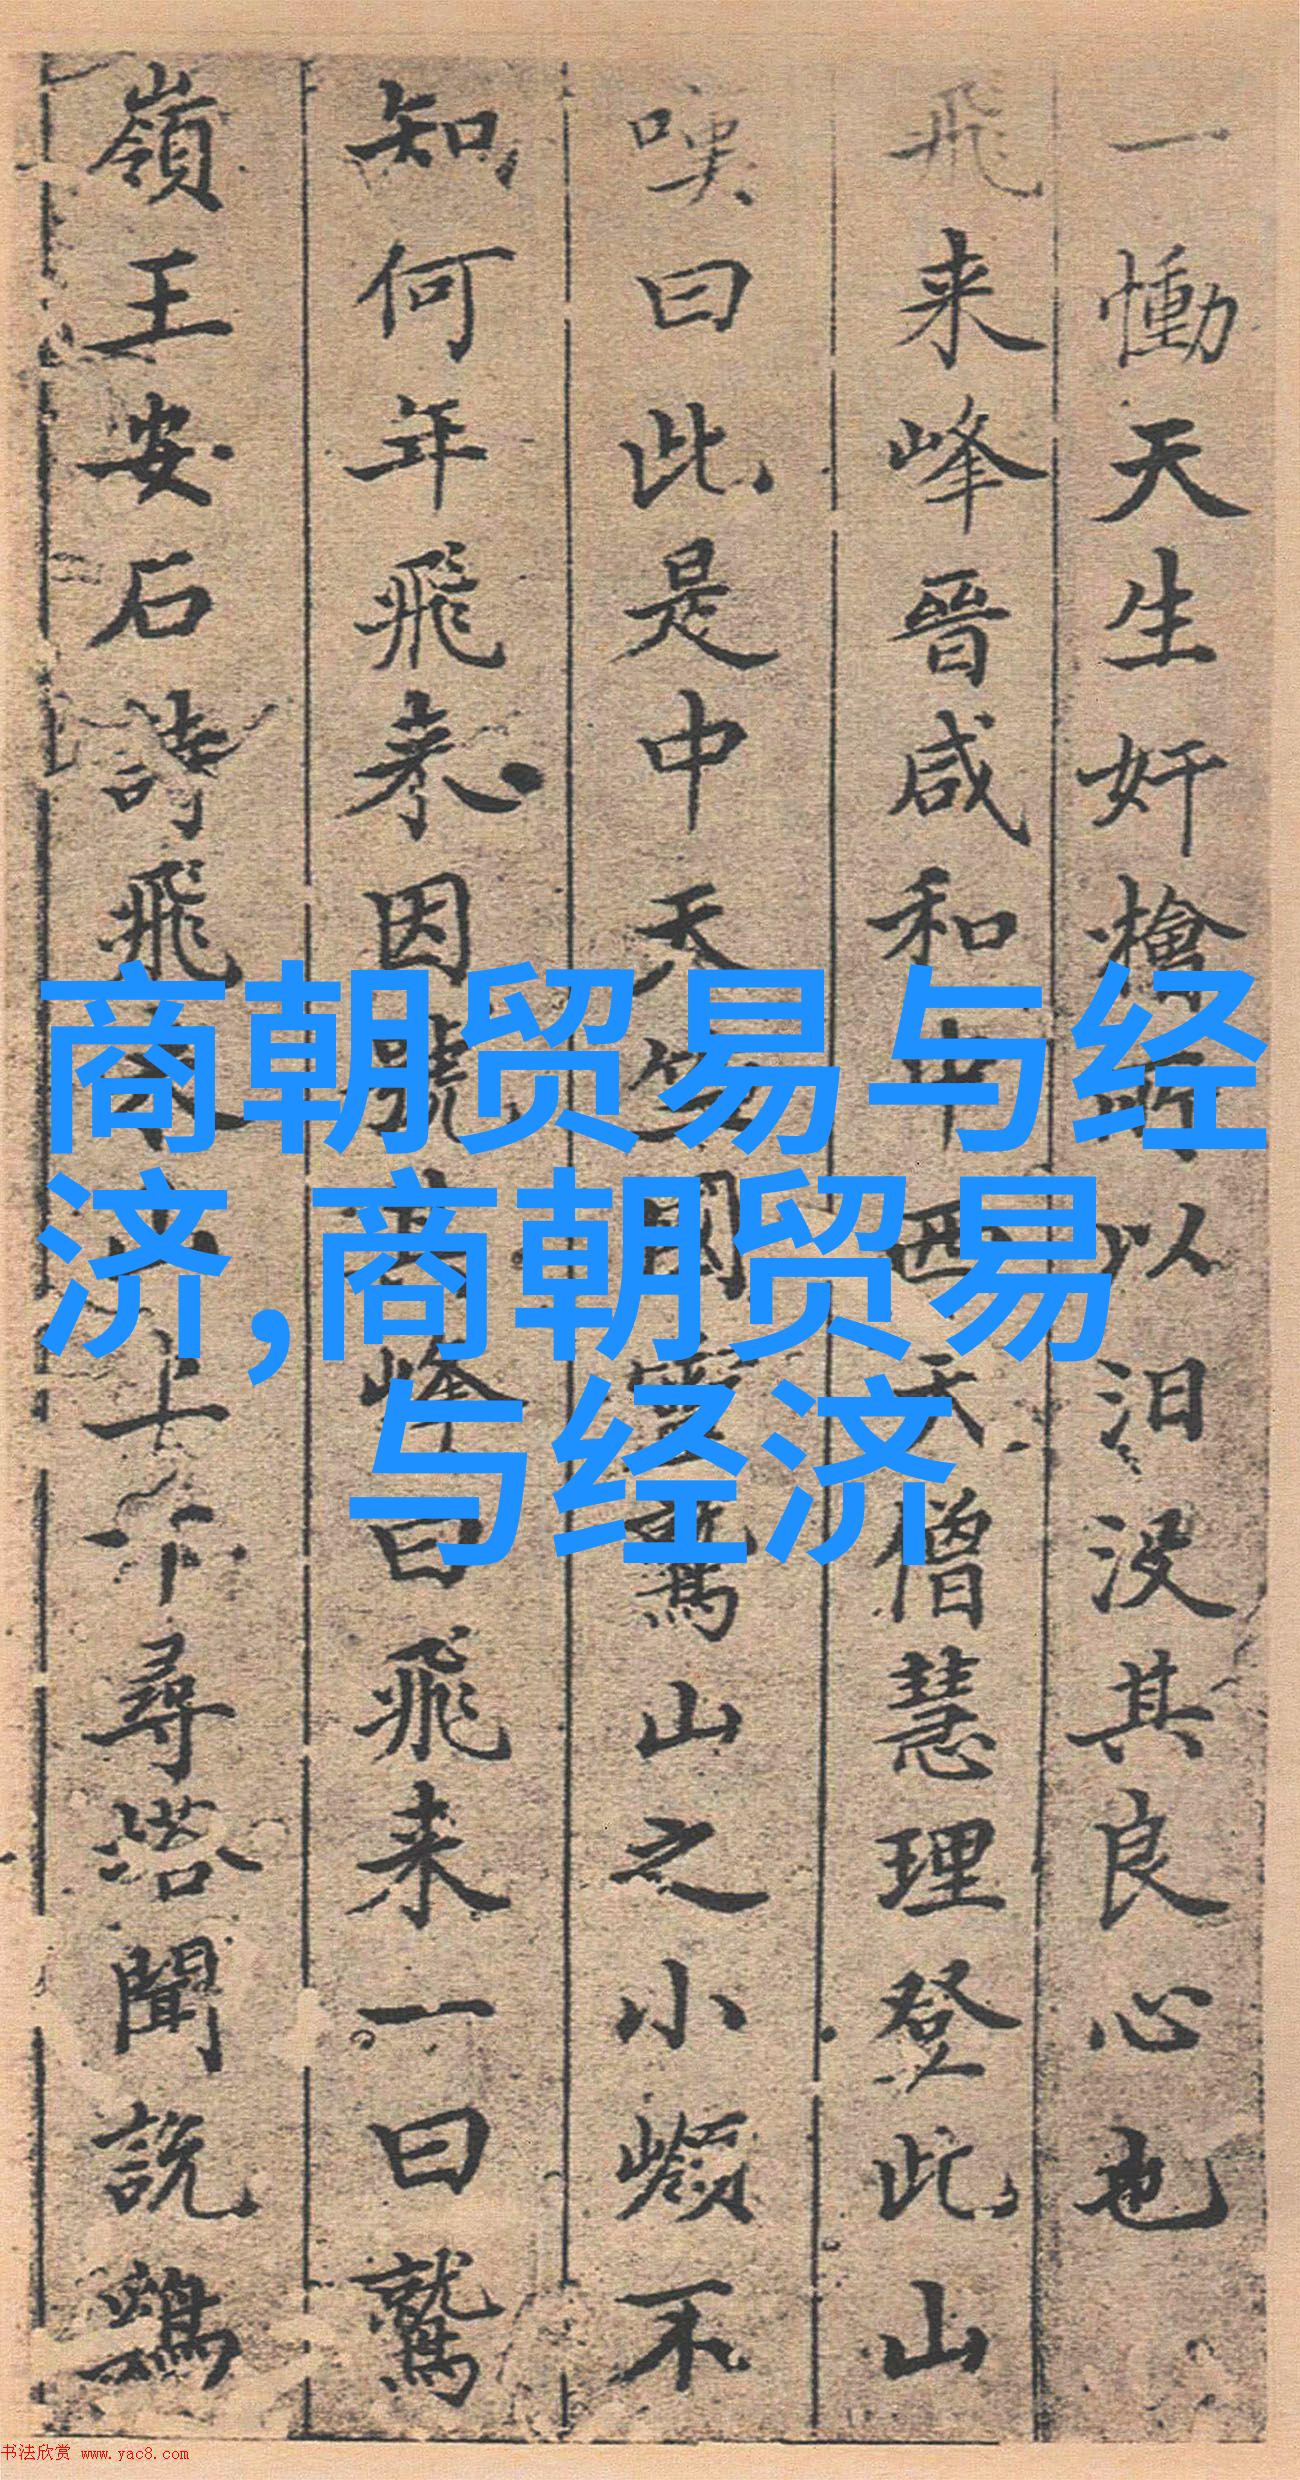 一慟天生奸檜所以汨没其良心也
飛来峰晉咸和中西天僧慧理登此山
嘆曰此是中天竺國靈鷲山之小嶺不
知何年飛来因號其峰曰飛来一曰鷲
嶺王安石詩飛来山上千尋塔聞説鷄
商朝贸易与经
济,商朝贸易
与经济
书法欣赏 www.yac8.com